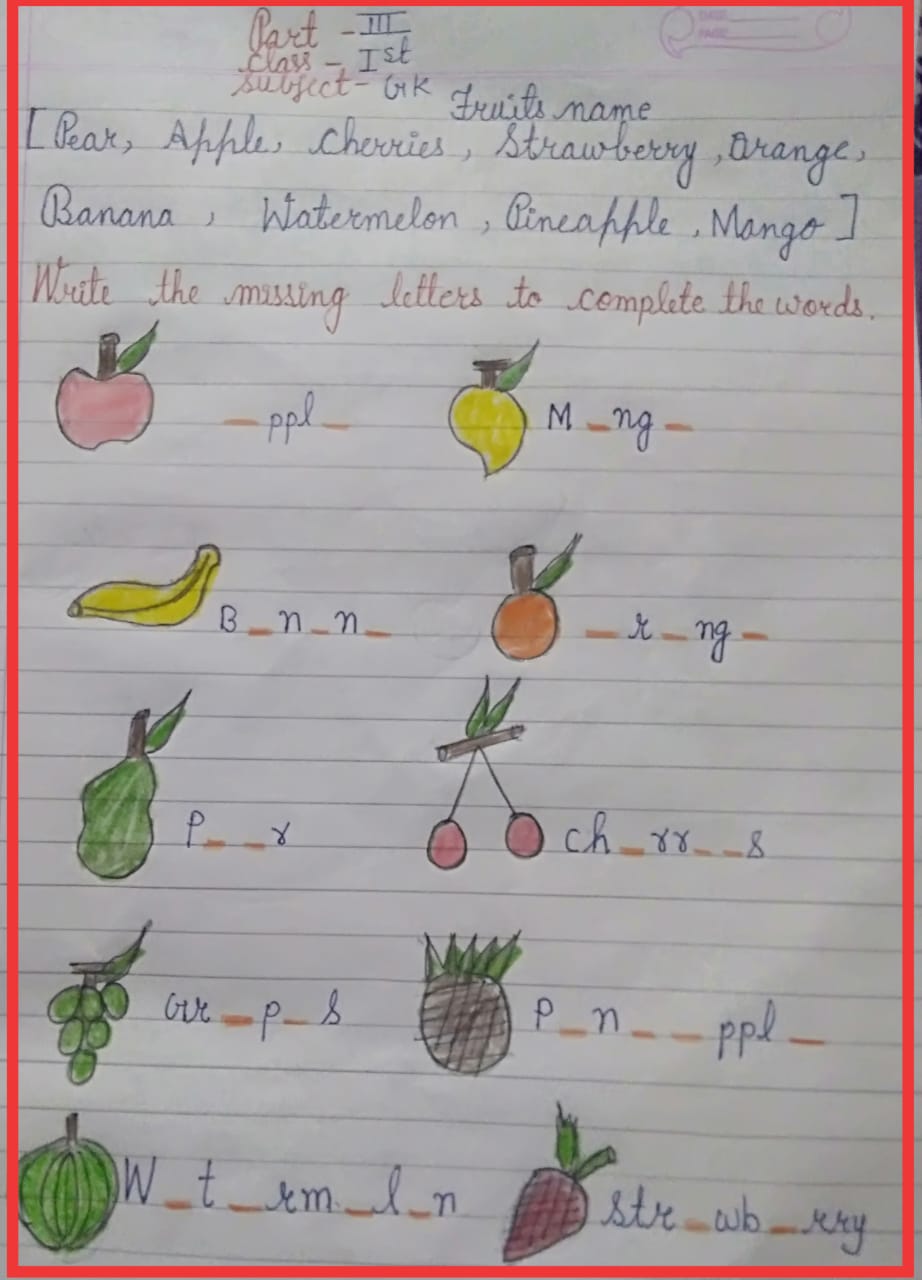 DATE
PAGE
Part - III
Class - Ist
Subject - GK
Fruits name
[ Pear, Apple, Cherries, Strawberry, Orange,
Banana, Watermelon, Pineapple, Mango ]
Write the missing letters to complete the words.
_ ppl _
M _ ng _
B _ n _ n _
_ r _ ng _
P _ _ r
ch _ rr _ _ s
Gr _ p _ s
P _ n _ _ ppl _
W _ t _ rm _ l _ n
str _ wb _ rry